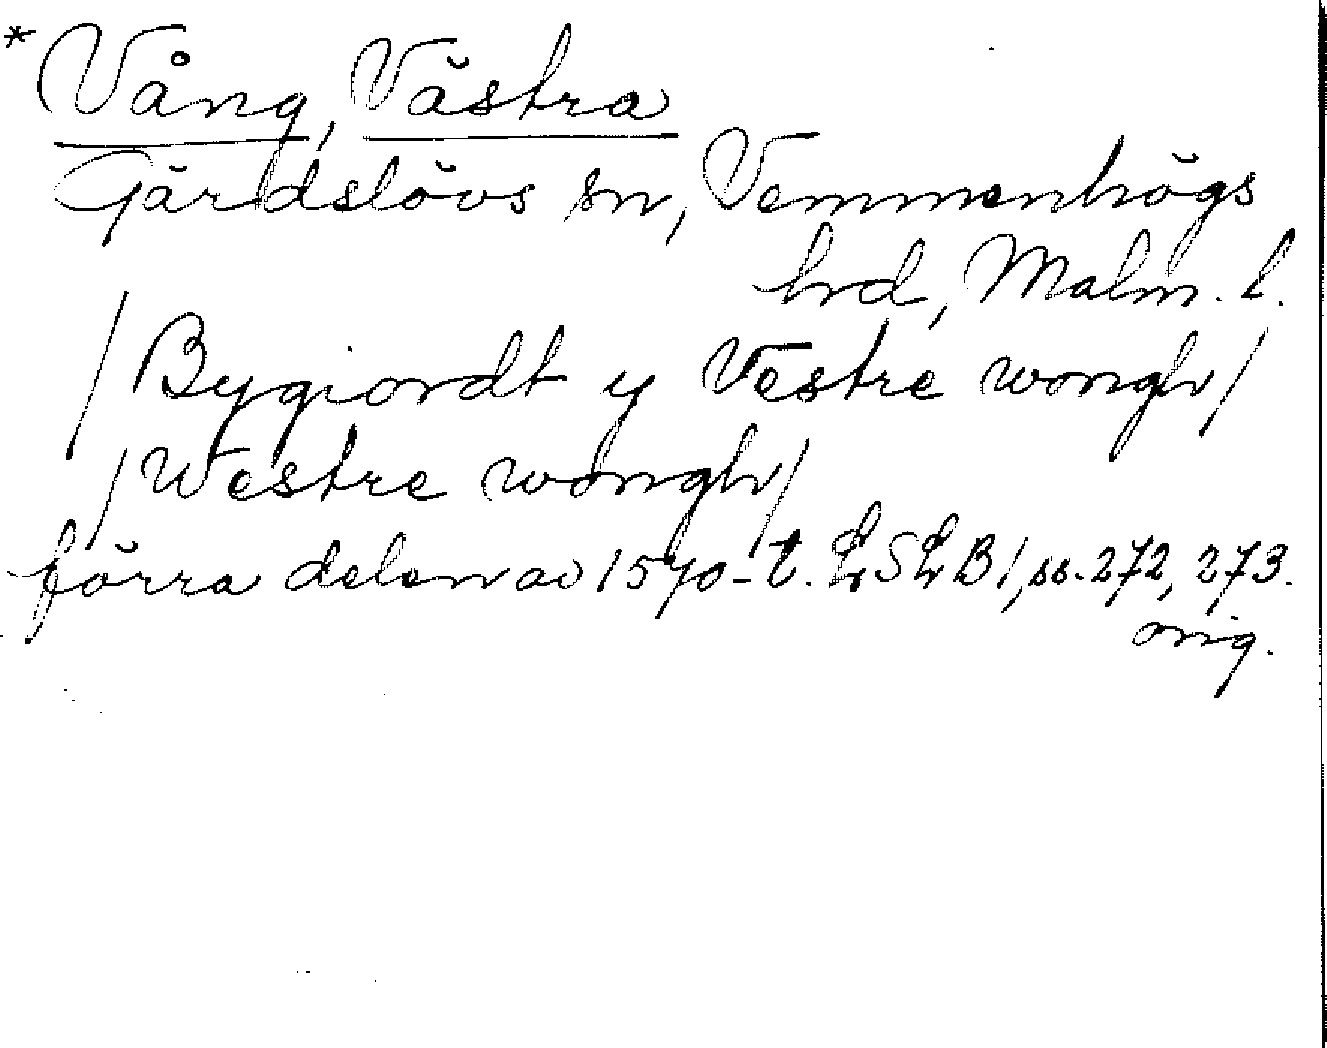 * Vång, Västra
Gärdslövs sn, Vemmenhögs
hrd, Malm. l.
/Bygiordt y Vestre wongh/
/Westre wongh/
förra delen av 1570-t. LSLB 1, ss. 272, 273.
orig.